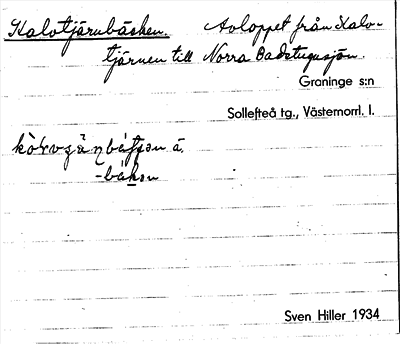 Kalvtjärnbäcken. Avloppet från Kalv-
tjärnen till Norra Badstugusjön.
Graninge s:n
Sollefteå tg., Västernorrl. l.
Sven Hiller 1934